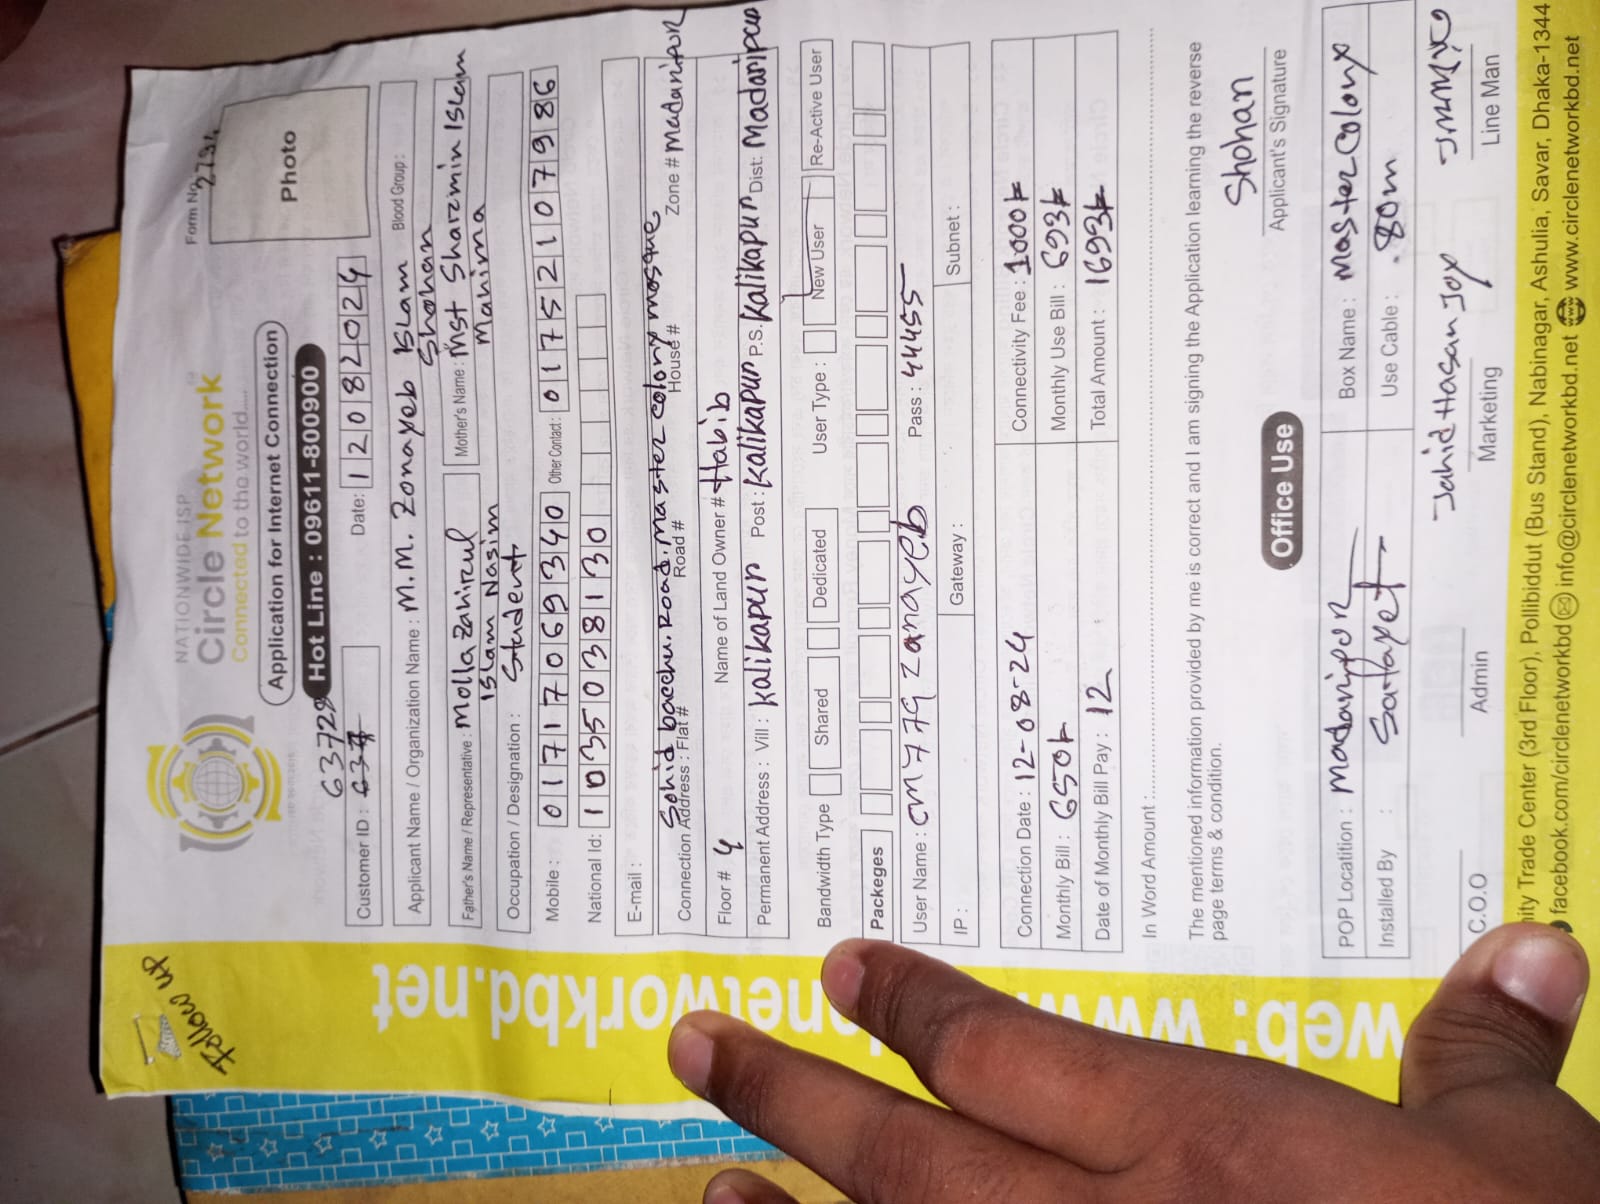 Follow up
NATIONWIDE ISP
Circle Network
Connected to the world....
Form No. 2734
Application for Internet Connection
Hot Line : 09611-800900
Photo
63728
Customer ID :
Date: 12082024
Applicant Name / Organization Name : M.M. Zonayeb Islam Shohan
Blood Group :
Father's Name / Representative : Molla Zahirul Islam Nasim
Mother's Name : Mst Sharmin Islam Mahima
Occupation / Designation : Student
Mobile : 01717069340 Other Contact: 01752107986
National Id: 1035038130
E-mail :
Sohid bacchu Road. master colony mosque
Connection Address : Flat # Road # House # Zone # Madaripur
Floor # 4 Name of Land Owner # Habib
Permanent Address : Vill : Kalikapur Post : Kalikapur P.S. Kalikapur Dist: Madaripur
Bandwidth Type Shared Dedicated User Type : New User Re-Active User
Packeges
User Name : cm779zonayeb Pass : 44455
IP : Gateway : Subnet :
Connection Date : 12-08-24 Connectivity Fee : 1000/=
Monthly Bill : 650/= Monthly Use Bill : 693/=
Date of Monthly Bill Pay : 12 Total Amount : 1693/=
In Word Amount :
The mentioned information provided by me is correct and I am signing the Application learning the reverse
page terms & condition.
Shohan
Applicant's Signature
Office Use
POP Locatition : Madaripur Box Name : Master Colony
Installed By : Use Cable : 80m
Jahid Hasan Joy
C.O.O Admin Marketing Line Man
nity Trade Center (3rd Floor), Pollibiddut (Bus Stand), Nabinagar, Ashulia, Savar, Dhaka-1344
facebook.com/circlenetworkbd info@circlenetworkbd.net www.circlenetworkbd.net
web: www
networkbd.net